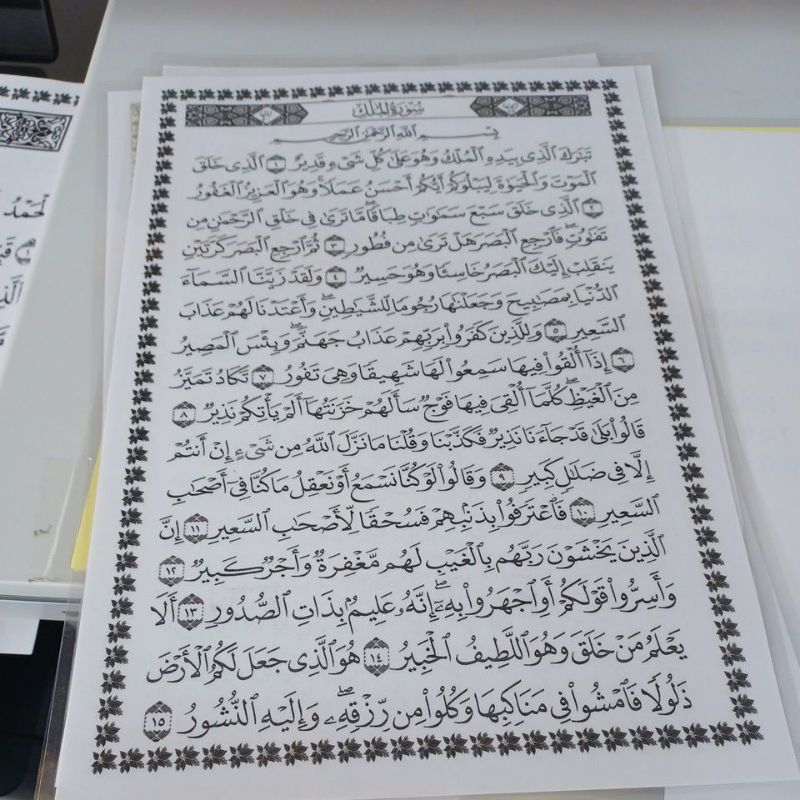 سُورَةُ الْمُلْكِ
بِسْمِ اللَّهِ الرَّحْمَٰنِ الرَّحِيمِ
تَبَٰرَكَ الَّذِى بِيَدِهِ الْمُلْكُ وَهُوَ عَلَىٰ كُلِّ شَىْءٍ قَدِيرٌ ١ الَّذِى خَلَقَ
الْمَوْتَ وَالْحَيَوٰةَ لِيَبْلُوَكُمْ أَيُّكُمْ أَحْسَنُ عَمَلًا وَهُوَ الْعَزِيزُ الْغَفُورُ
٢ الَّذِى خَلَقَ سَبْعَ سَمَٰوَٰتٍ طِبَاقًا مَّا تَرَىٰ فِى خَلْقِ الرَّحْمَٰنِ مِن
تَفَٰوُتٍ فَارْجِعِ الْبَصَرَ هَلْ تَرَىٰ مِن فُطُورٍ ٣ ثُمَّ ارْجِعِ الْبَصَرَ كَرَّتَيْنِ
يَنقَلِبْ إِلَيْكَ الْبَصَرُ خَاسِئًا وَهُوَ حَسِيرٌ ٤ وَلَقَدْ زَيَّنَّا السَّمَآءَ
الدُّنْيَا بِمَصَٰبِيحَ وَجَعَلْنَٰهَا رُجُومًا لِّلشَّيَٰطِينِ وَأَعْتَدْنَا لَهُمْ عَذَابَ
السَّعِيرِ ٥ وَلِلَّذِينَ كَفَرُوا۟ بِرَبِّهِمْ عَذَابُ جَهَنَّمَ وَبِئْسَ الْمَصِيرُ
٦ إِذَآ أُلْقُوا۟ فِيهَا سَمِعُوا۟ لَهَا شَهِيقًا وَهِىَ تَفُورُ ٧ تَكَادُ تَمَيَّزُ
مِنَ الْغَيْظِ كُلَّمَآ أُلْقِىَ فِيهَا فَوْجٌ سَأَلَهُمْ خَزَنَتُهَآ أَلَمْ يَأْتِكُمْ نَذِيرٌ ٨
قَالُوا۟ بَلَىٰ قَدْ جَآءَنَا نَذِيرٌ فَكَذَّبْنَا وَقُلْنَا مَا نَزَّلَ اللَّهُ مِن شَىْءٍ إِنْ أَنتُمْ
إِلَّا فِى ضَلَٰلٍ كَبِيرٍ ٩ وَقَالُوا۟ لَوْ كُنَّا نَسْمَعُ أَوْ نَعْقِلُ مَا كُنَّا فِىٓ أَصْحَٰبِ
السَّعِيرِ ١٠ فَاعْتَرَفُوا۟ بِذَنۢبِهِمْ فَسُحْقًا لِّأَصْحَٰبِ السَّعِيرِ ١١ إِنَّ
الَّذِينَ يَخْشَوْنَ رَبَّهُم بِالْغَيْبِ لَهُم مَّغْفِرَةٌ وَأَجْرٌ كَبِيرٌ ١٢
وَأَسِرُّوا۟ قَوْلَكُمْ أَوِ اجْهَرُوا۟ بِهِۦٓ إِنَّهُۥ عَلِيمٌۢ بِذَاتِ الصُّدُورِ ١٣ أَلَا
يَعْلَمُ مَنْ خَلَقَ وَهُوَ اللَّطِيفُ الْخَبِيرُ ١٤ هُوَ الَّذِى جَعَلَ لَكُمُ الْأَرْضَ
ذَلُولًا فَامْشُوا۟ فِى مَنَاكِبِهَا وَكُلُوا۟ مِن رِّزْقِهِۦ وَإِلَيْهِ النُّشُورُ ١٥